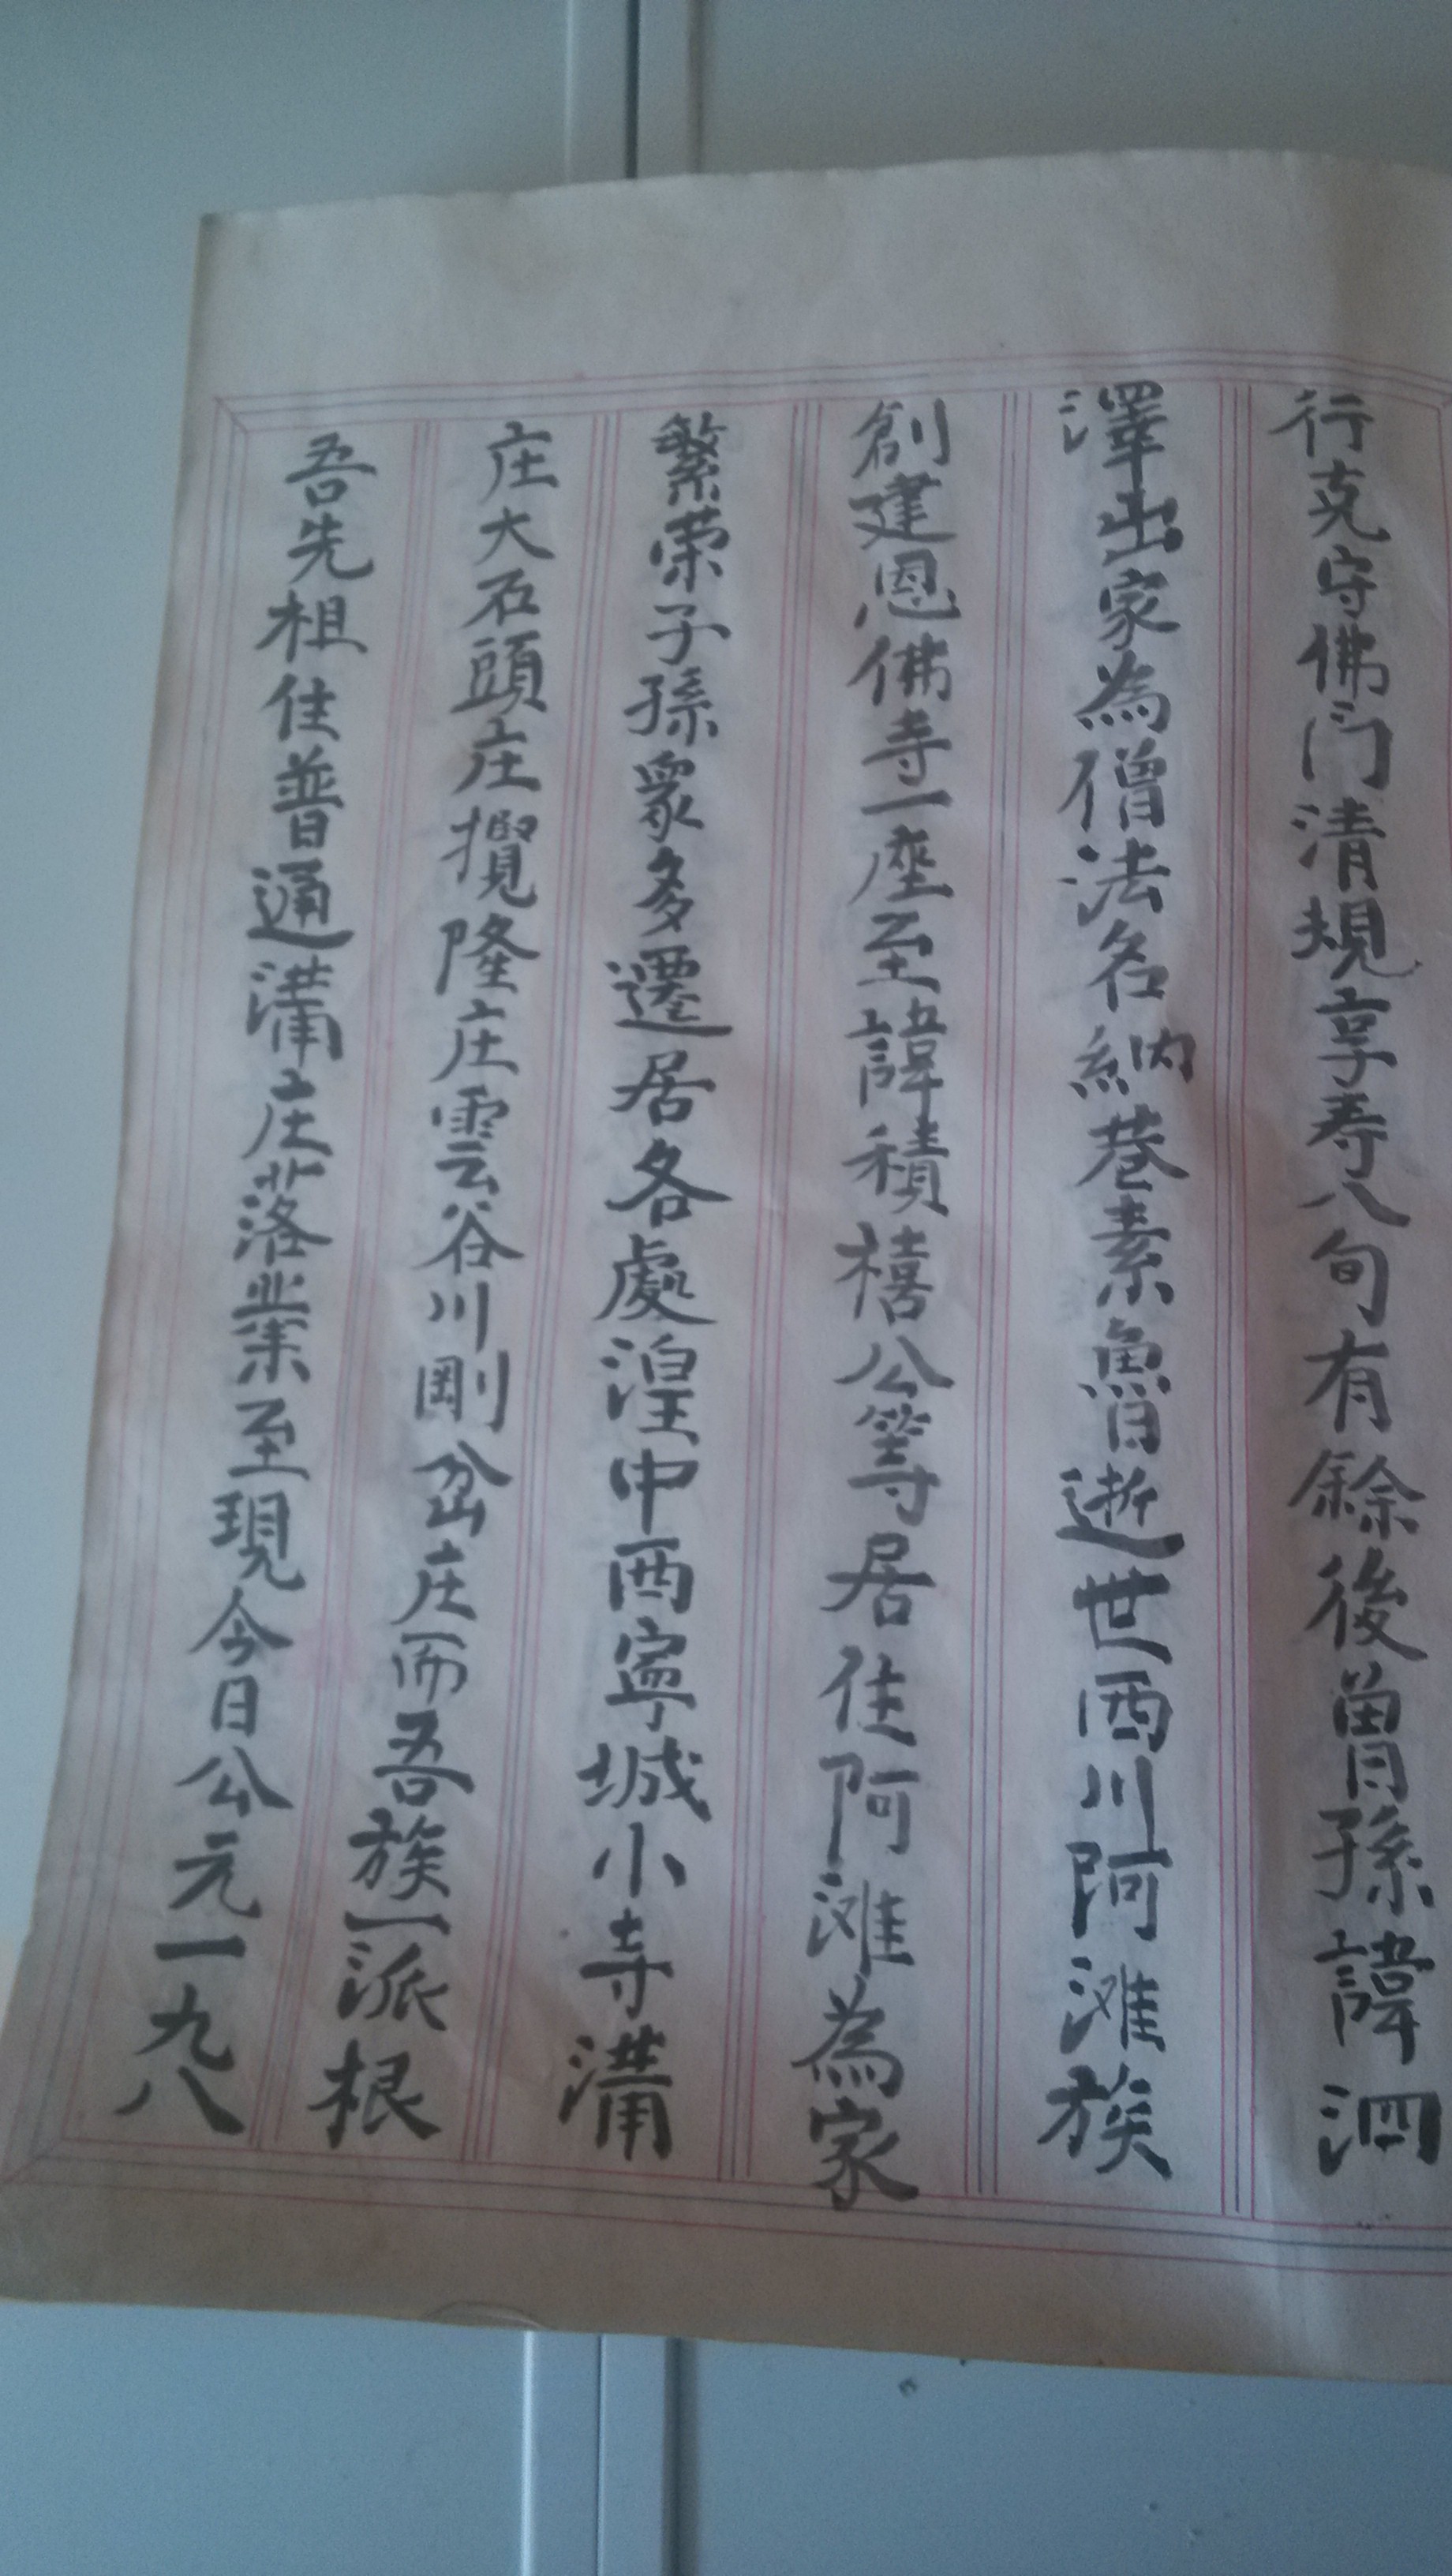 行克守佛门清規享寿八旬有餘後曾孫諱泗
澤出家為僧法名納巷素魯逝世西川阿滩族
創建恩佛寺一座至諱積禧公等居住阿滩為家
繁荣子孫衆多遷居各處湟中西寧城小寺溝
庄大石頭庄攬隆庄雲谷川剛岔庄而吾族一派根
吾先祖住普通溝庄落業至現今日公元一九八